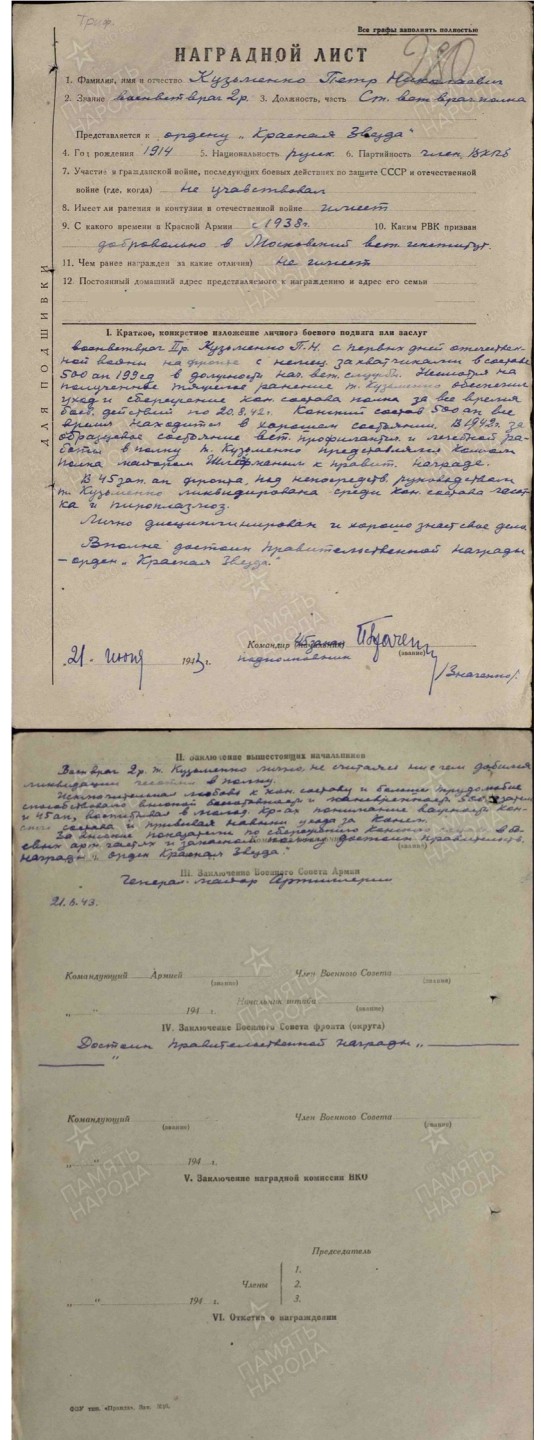 Триф.
Все графы заполнять полностью
280
НАГРАДНОЙ ЛИСТ
1. Фамилия, имя и отчество Кузьменко Петр Николаевич
2. Звание военветврач 2р. 3. Должность, часть Ст. ветврач полка
Представляется к ордену „Красная Звезда"
4. Год рождения 1914 5. Национальность русск 6. Партийность член ВКПб
7. Участие в гражданской войне, последующих боевых действиях по защите СССР и отечественной
войне (где, когда) не участвовал
8. Имеет ли ранения и контузии в отечественной войне имеет
9. С какого времени в Красной Армии с 1938г. 10. Каким РВК призван
добровольно в Московский вет. институт.
11. Чем ранее награжден за какие отличия) не имеет
12 Постоянный домашний адрес представляемого к награждению и адрес его семьи
ДЛЯ ПОДШИВКИ
I. Краткое, конкретное изложение личного боевого подвига или заслуг
военветврач IIр. Кузьменко П.Н. с первых дней отечествен-
ной войны на фронте с немец. захватчиками в составе
500 ап 199сд в должности нач. вет. службы. Несмотря на
полученное тяжелое ранение т. Кузьменко обеспечил
уход и сбережение кон. состава полка за все время
боев. действий по 20.8.42г. Конский состав 500 ап все
время находится в хорошем состоянии. В 1942г. за
образцовое состояние вет. профилактич и лечебной ра-
боты в полку т. Кузьменко представлялся
полка майором к правит. награде.
В 45 зап. ап фронта, под непосредств. руководством
т. Кузьменко ликвидирована среди кон. состава чесот-
ка и пироплазмоз.
Лично дисциплинирован и хорошо знает свое дело
Вполне достоин правительственной награды
– орден „Красная Звезда"
Командир 45 запап
„21" июня 1943г. подполковник (звание)
/Зназенко/.
II. Заключение вышестоящих начальников
Воен врач 2р. т. Кузьменко лично не считаясь ни с чем добился
ликвидации чесотки в полку.
Исключительная любовь к кон. составу и большое трудолюбие
способствовало высокой и маневренности 500
и 45 ап, воспитывая в молод. кр-ах понимание важности кон-
ского состава и прививая навыки ухода за конем.
За отличные показатели по сбережению конского
арт. частях и запасном полку достоин правительств.
награды орден Красная Звезда".
III. Заключение Военного Совета Армии
Генерал-майор Артиллерии
21.6.43.
Командующий Армией (звание) Член Военного Совета (звание)
„ " 194 г. Начальник штаба (звание)
IV. Заключение Военного Совета фронта (округа)
Достоин правительственной награды „
"
Командующий (звание) Член Военного Совета (звание)
„ " 194 г.
V. Заключение наградной комиссии НКО
Председатель
1.
Члены 2.
„ " 194 г. 3.
VI. Отметка о награждении
ПАМЯТЬ НАРОДА